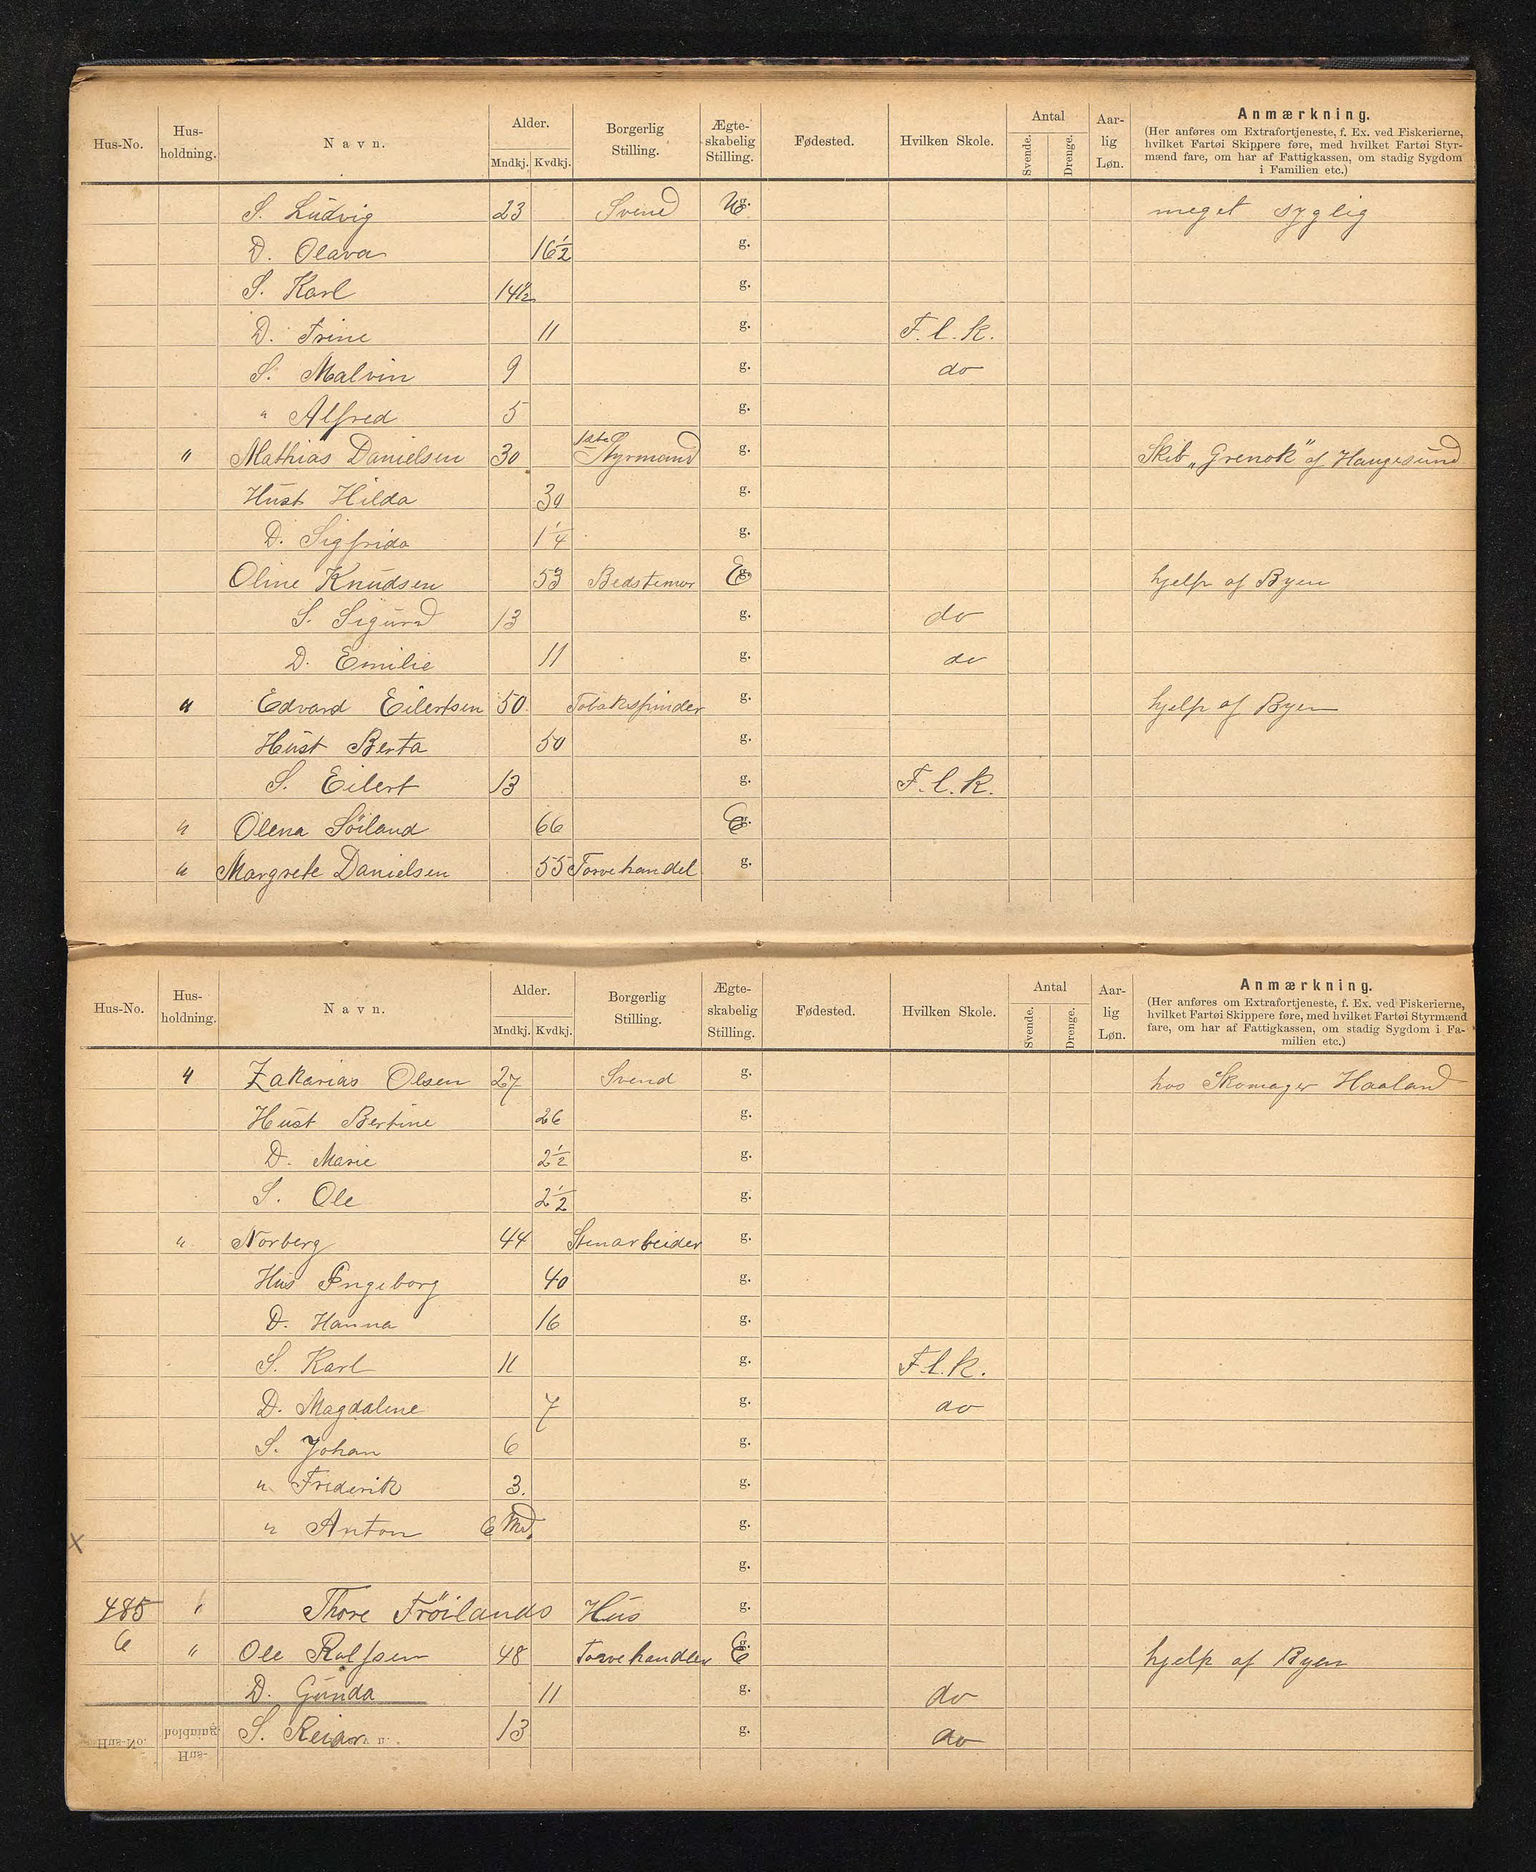 Hus-No. Hus-holdning. Navn. Alder. Mndkj. Kvdkj. Borgerlig Stilling. Ægte-skabelig Stilling. Fødested. Hvilken Skole. Antal Svende. Drenge. Aar-lig Løn. Anmærkning.
(Her anføres om Extrafortjeneste, f. Ex. ved Fiskerierne,
hvilket Fartøi Skippere føre, med hvilket Fartøi Styr-
mænd fare, om har af Fattigkassen, om stadig Sygdom
i Familien etc.)
S. Ludvig 23 Svend U g. meget syglig
D. Olava 16½ g.
S. Karl 14½ g.
D. Trine 11 g. F.l.k.
S. Malvin 9 g. do
" Alfred 5 g.
" Mathias Danielsen 30 Styrmand g. Skib „Grenok" af Haugesund
Hust Hilda 30 g.
D. Sigfrida 1¼ g.
Oline Knudsen 53 Bedstemor E g. hjelp af Byen
S. Sigurd 13 g. do
D. Emilie 11 g. do
" Edvard Eilertsen 50 Tobakspinder g. hjelp af Byen
Hust Berta 50 g.
S. Eilert 13 g. F.l.k.
" Olena Söiland 66 E g.
" Margrete Danielsen 55 Torvehandel g.
Hus-No. Hus-holdning. Navn. Alder. Mndkj. Kvdkj. Borgerlig Stilling. Ægte-skabelig Stilling. Fødested. Hvilken Skole. Antal Svende. Drenge. Aar-lig Løn. Anmærkning.
(Her anføres om Extrafortjeneste, f. Ex. ved Fiskerierne,
hvilket Fartøi Skippere føre, med hvilket Fartøi Styrmænd
fare, om har af Fattigkassen, om stadig Sygdom i Fa-
milien etc.)
" Zakarias Olsen 27 Svend g. hos Skomager Haaland
Hust Bertine 26 g.
D. Marie 2½ g.
S. Ole 2½ g.
" Norberg 44 Stenarbeider g.
Hus Ingeborg 40 g.
D. Hanna 16 g.
S. Karl 11 g. F.l.k.
D. Magdalene 7 g. do
S. Johan 6 g.
" Frederik 3. g.
" Anton 6 Md. g.
x g.
485 " Thore Fröilands Hus g.
6 " Ole Rolfsen 48 Torvehandler E g. hjelp af Byen
D. Gunda 11 g. do
S. Reidar 13 g. do
Hus-No. Hus-holdning.